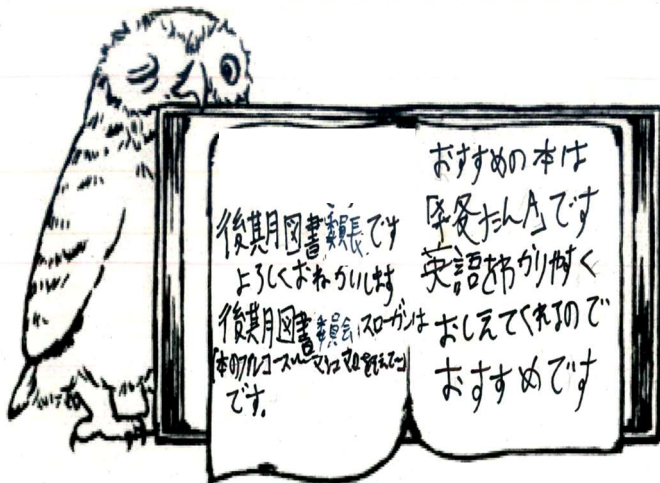 後期図書委員長です
よろしくおねがいします
後期図書委員会スローガンは
「本のフルコース
です。
おすすめの本は
です
英語をわかりやすく
おしえてくれるので
おすすめです